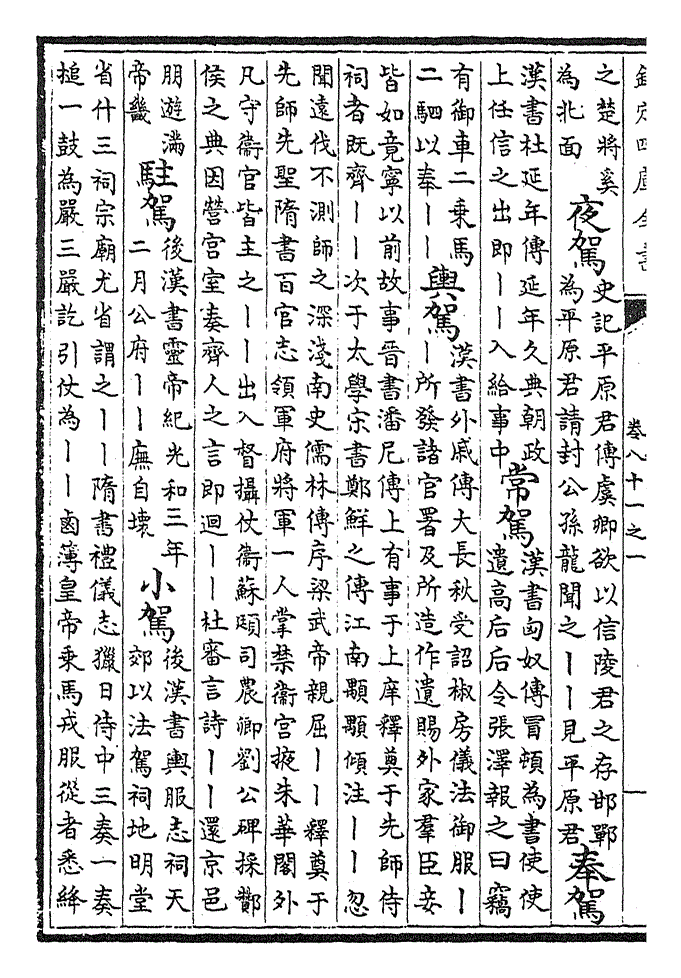 欽定四庫全書
卷八十一之一
一
之楚將奚
為北面
夜駕
史記平原君傳虞卿欲以信陵君之存邯鄲
為平原君請封公孫龍聞之丨丨見平原君
奉駕
漢書杜延年傳延年久典朝政
上任信之出即丨丨入給事中
常駕
漢書匈奴傳冒頓為書使使
遺高后后令張澤報之曰竊
有御車二乘馬
二駟以奉丨丨
輿駕
漢書外戚傳大長秋受詔椒房儀法御服丨
丨所發諸官署及所造作遺賜外家羣臣妾
皆如竟寧以前故事晉書潘尼傳上有事于上庠釋奠于先師侍
祠者既齊丨丨次于太學宋書鄭鮮之傳江南顒顒傾注丨丨忽
聞遠伐不測師之深淺南史儒林傳序梁武帝親屈丨丨釋奠于
先師先聖隋書百官志領軍府將軍一人掌禁衞宮掖朱華閣外
凡守衞官皆主之丨丨出入督攝仗衞蘇頲司農卿劉公碑採酇
侯之典因營宮室奏齊人之言即迴丨丨杜審言詩丨丨還京邑
朋遊滿
帝畿
駐駕
後漢書靈帝紀光和三年
二月公府丨丨廡自壞
小駕
後漢書輿服志祠天
郊以法駕祠地明堂
省什三祠宗廟尤省謂之丨丨隋書禮儀志獵日侍中三奏一奏
搥一鼓為嚴三嚴訖引仗為丨丨鹵簿皇帝乘馬戎服從者悉絳